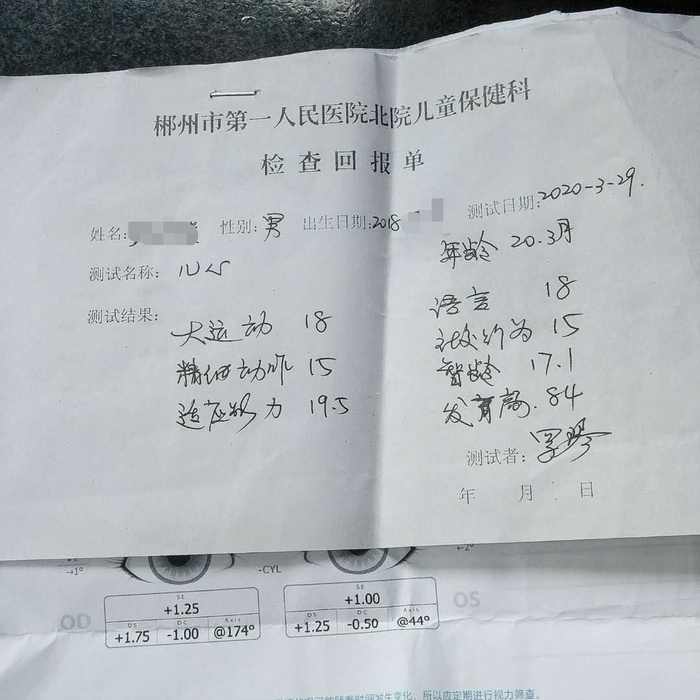 郴州市第一人民医院北院儿童保健科
检查回报单
姓名: 性别: 男 出生日期: 2018 测试日期: 2020-3-29.
年龄 20.3月
测试名称: 儿心
测试结果:
大运动 18 语言 18
精细动作 15 社交行为 15
适应能力 19.5 智龄 17.1
发育商. 84
测试者:
年 月 日
→1° -CYL ←2°
OD SE +1.25 SE +1.00 OS
DS +1.75 DC -1.00 Axis @174° DS +1.25 DC -0.50 Axis @44°
时间发生变化, 所以应定期进行视力筛查。